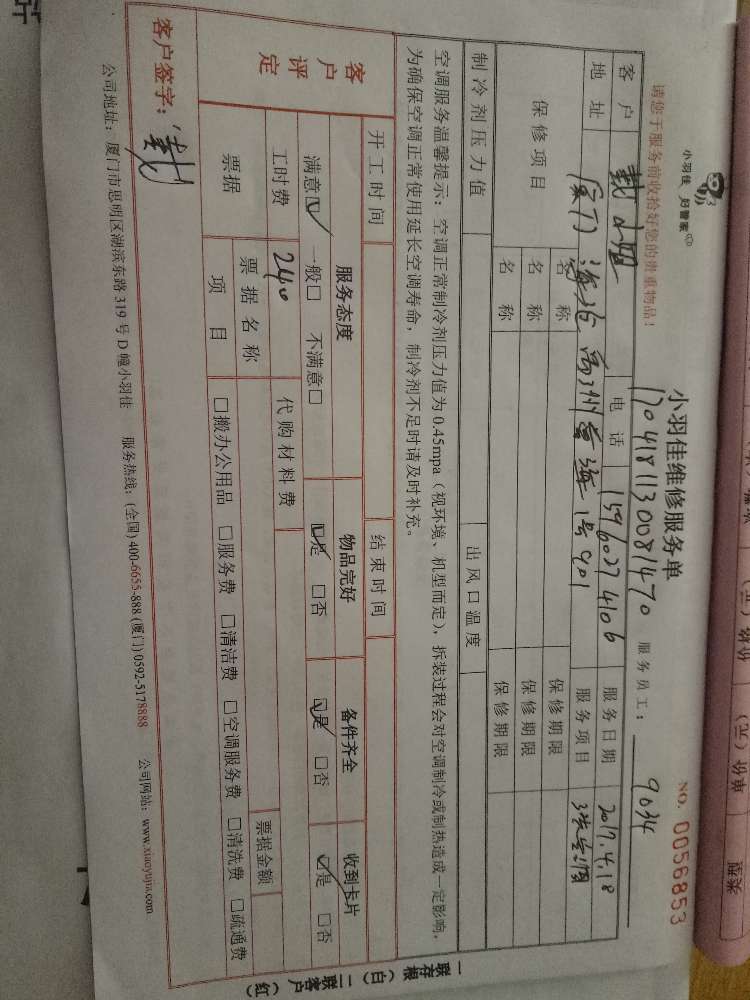 小羽佳 好管家
小羽佳维修服务单
NO. 0056853
1704181130081470
服务员工: 9034
请您于服务前收拾好您的贵重物品!
客户 戴小姐 电话 15960274106 服务日期 2017.4.18
地址 厦门 海沧 1号901 服务项目
保修项目 名称 保修期限
名称 保修期限
名称 保修期限
制冷剂压力值 出风口温度
空调服务温馨提示: 空调正常制冷剂压力值为0.45mpa (视环境、机型而定), 拆装过程会对空调制冷或制热造成一定影响,
为确保空调正常使用延长空调寿命, 制冷剂不足时请及时补充。
开工时间 结束时间
客户评定 服务态度 物品完好 备件齐全 收到卡片
满意☑ 一般□ 不满意□ ☑是 □否 ☑是 □否 ☑是 □否
工时费 240 代购材料费
票据 票据名称 票据金额
项目 □搬办公用品 □服务费 □清洁费 □空调服务费 □清洗费 □疏通费
客户签字: 戴
公司地址: 厦门市思明区湖滨东路319号D幢小羽佳 服务热线: (全国) 400-6655-888 (厦门) 0592-5178888 公司网站: www.xiaoyujia.com
一联存根 (白) 二联客户 (红)